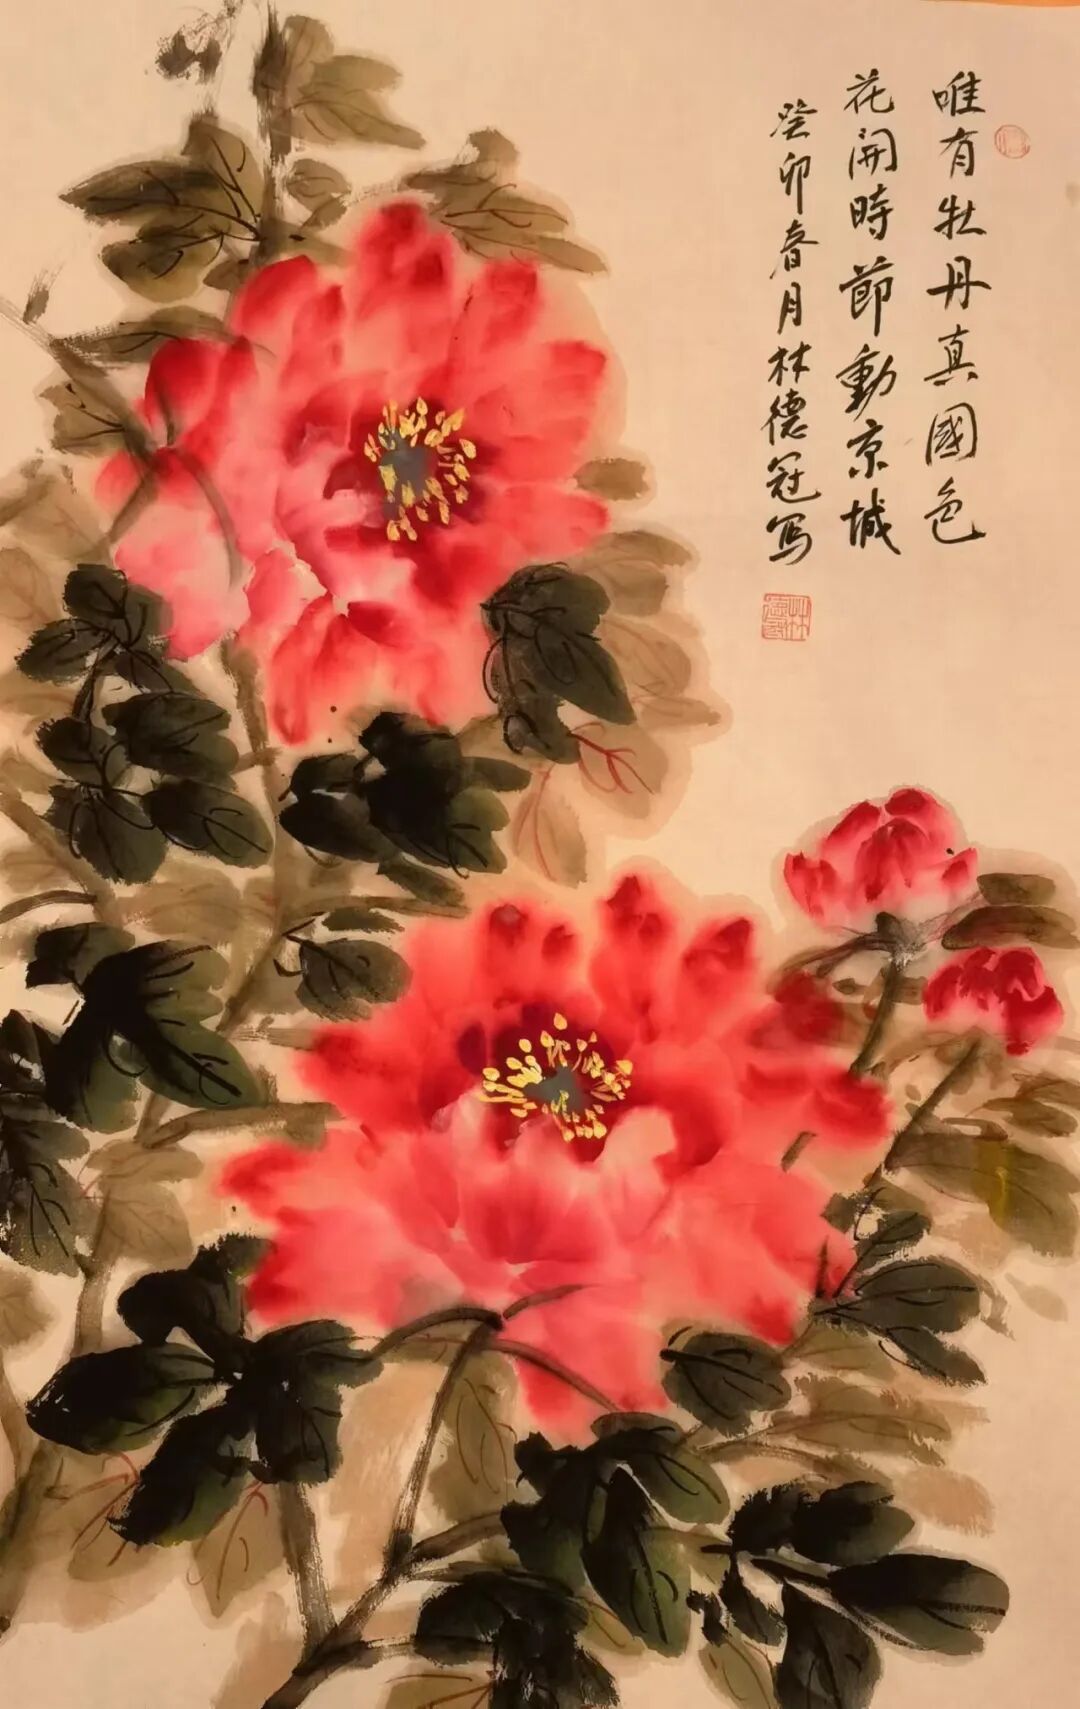 唯有牡丹真國色
花開時節動京城
癸卯春月林德冠写